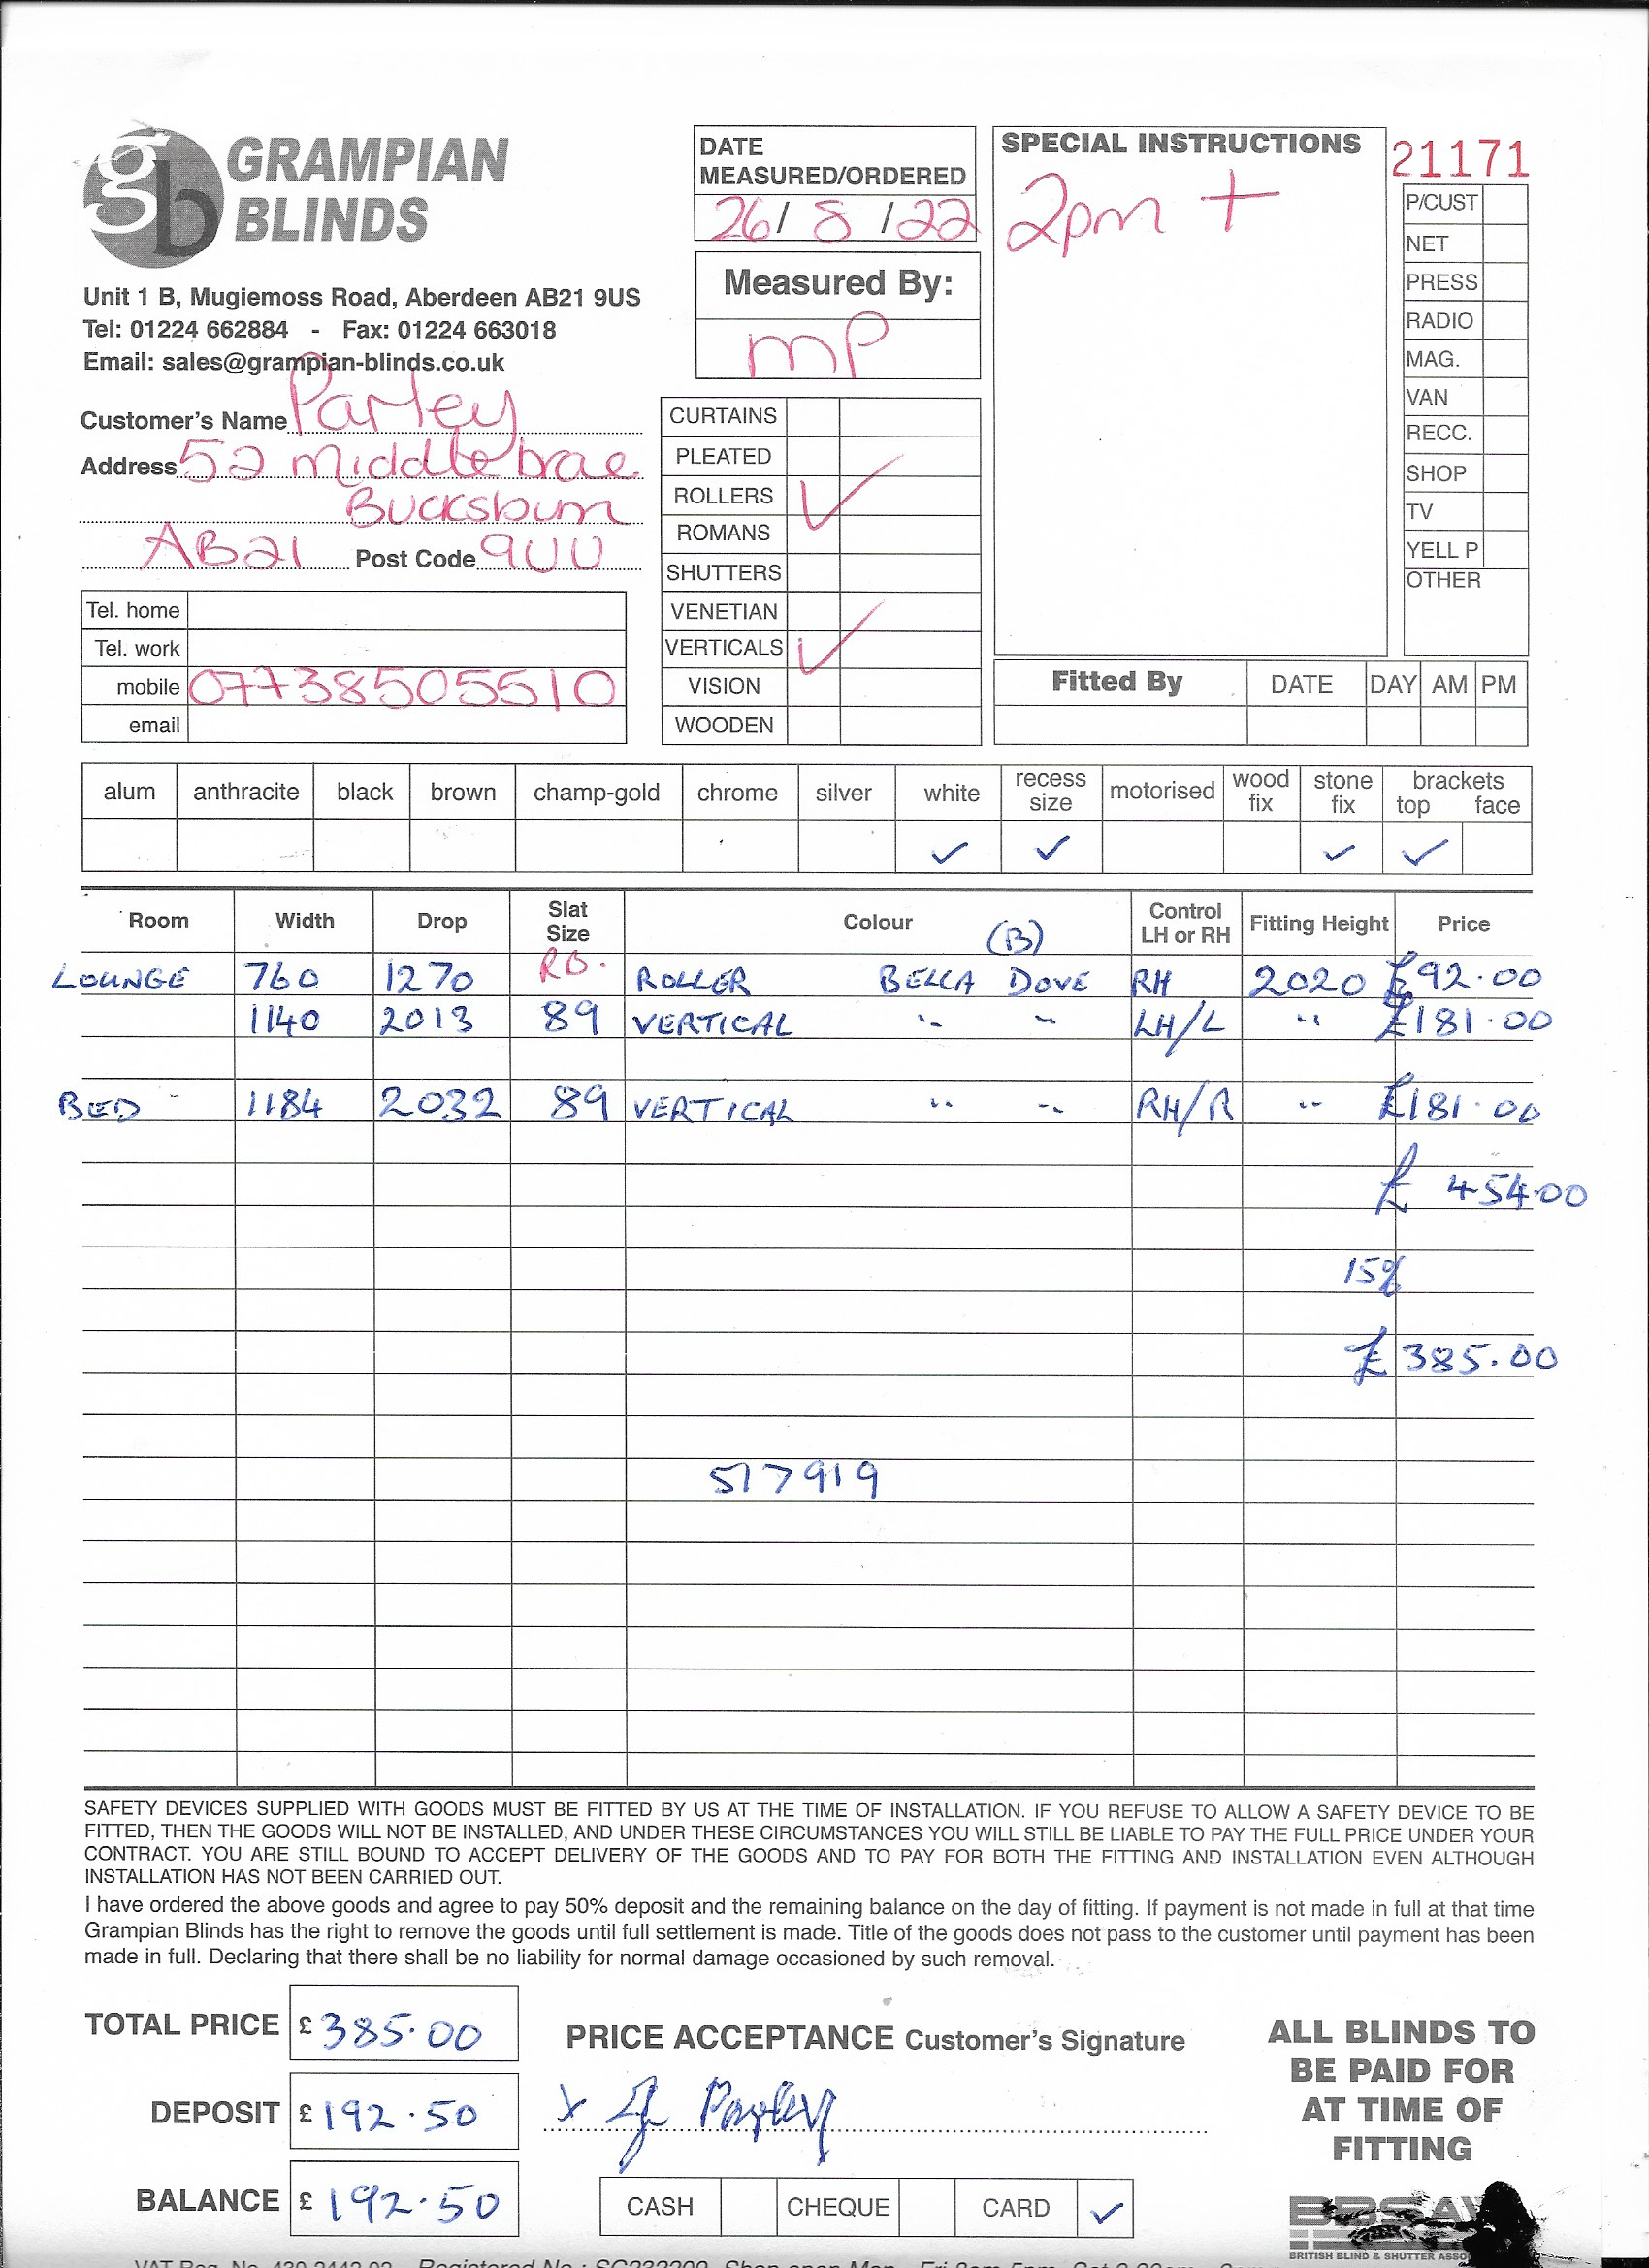 GRAMPIAN
BLINDS
Unit 1 B, Mugiemoss Road, Aberdeen AB21 9US
Tel: 01224 662884 - Fax: 01224 663018
Email: sales@grampian-blinds.co.uk
Customer's Name Parley
Address 52 Middlebrae
Bucksburn
AB21 Post Code 9UU
Tel. home
Tel. work
mobile 07738505510
email
DATE
MEASURED/ORDERED
26/8/22
Measured By:
MP
CURTAINS
PLEATED
ROLLERS ✓
ROMANS
SHUTTERS
VENETIAN
VERTICALS ✓
VISION
WOODEN
SPECIAL INSTRUCTIONS
2pm +
21171
P/CUST
NET
PRESS
RADIO
MAG.
VAN
RECC.
SHOP
TV
YELL P
OTHER
Fitted By DATE DAY AM PM
alum anthracite black brown champ-gold chrome silver white recess size motorised wood fix stone fix brackets top face
✓ ✓ ✓ ✓
Room Width Drop Slat Size Colour (B) Control LH or RH Fitting Height Price
LOUNGE 760 1270 RB. ROLLER BELLA DOVE RH 2020 £92.00
1140 2013 89 VERTICAL " " LH/L " £181.00
BED 1184 2032 89 VERTICAL " " RH/R " £181.00
£ 454.00
15%
£ 385.00
517919
SAFETY DEVICES SUPPLIED WITH GOODS MUST BE FITTED BY US AT THE TIME OF INSTALLATION. IF YOU REFUSE TO ALLOW A SAFETY DEVICE TO BE
FITTED, THEN THE GOODS WILL NOT BE INSTALLED, AND UNDER THESE CIRCUMSTANCES YOU WILL STILL BE LIABLE TO PAY THE FULL PRICE UNDER YOUR
CONTRACT. YOU ARE STILL BOUND TO ACCEPT DELIVERY OF THE GOODS AND TO PAY FOR BOTH THE FITTING AND INSTALLATION EVEN ALTHOUGH
INSTALLATION HAS NOT BEEN CARRIED OUT.
I have ordered the above goods and agree to pay 50% deposit and the remaining balance on the day of fitting. If payment is not made in full at that time
Grampian Blinds has the right to remove the goods until full settlement is made. Title of the goods does not pass to the customer until payment has been
made in full. Declaring that there shall be no liability for normal damage occasioned by such removal.
TOTAL PRICE £ 385.00
DEPOSIT £ 192.50
BALANCE £ 192.50
PRICE ACCEPTANCE Customer's Signature
x Parley
CASH CHEQUE CARD ✓
ALL BLINDS TO
BE PAID FOR
AT TIME OF
FITTING
BRITISH BLIND & SHUTTER